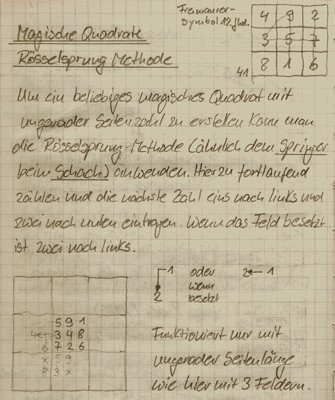 Freimaurer-
Symbol 12 glat.
4 9 2
3 5 7
8 1 6
41
Magische Quadrate
Rösselsprung Methode
Um ein beliebiges magisches Quadrat mit
ungerader Seitenzahl zu erstellen kann man
die Rösselsprung-Methode (ähnlich dem Springer
beim Schach) anwenden. Hierzu fortlaufend
zählen und die nächste Zahl eins nach links und
zwei nach unten eintragen. Wenn das Feld besetzt
ist zwei nach links.
1 oder 2 ← 1
wenn
2 besetzt
5 9 1
4 ← 3 4 8
6 7 2 6
x 5 9
8 3 x
Funktioniert nur mit
ungerader Seitenlänge
wie hier mit 3 Feldern.